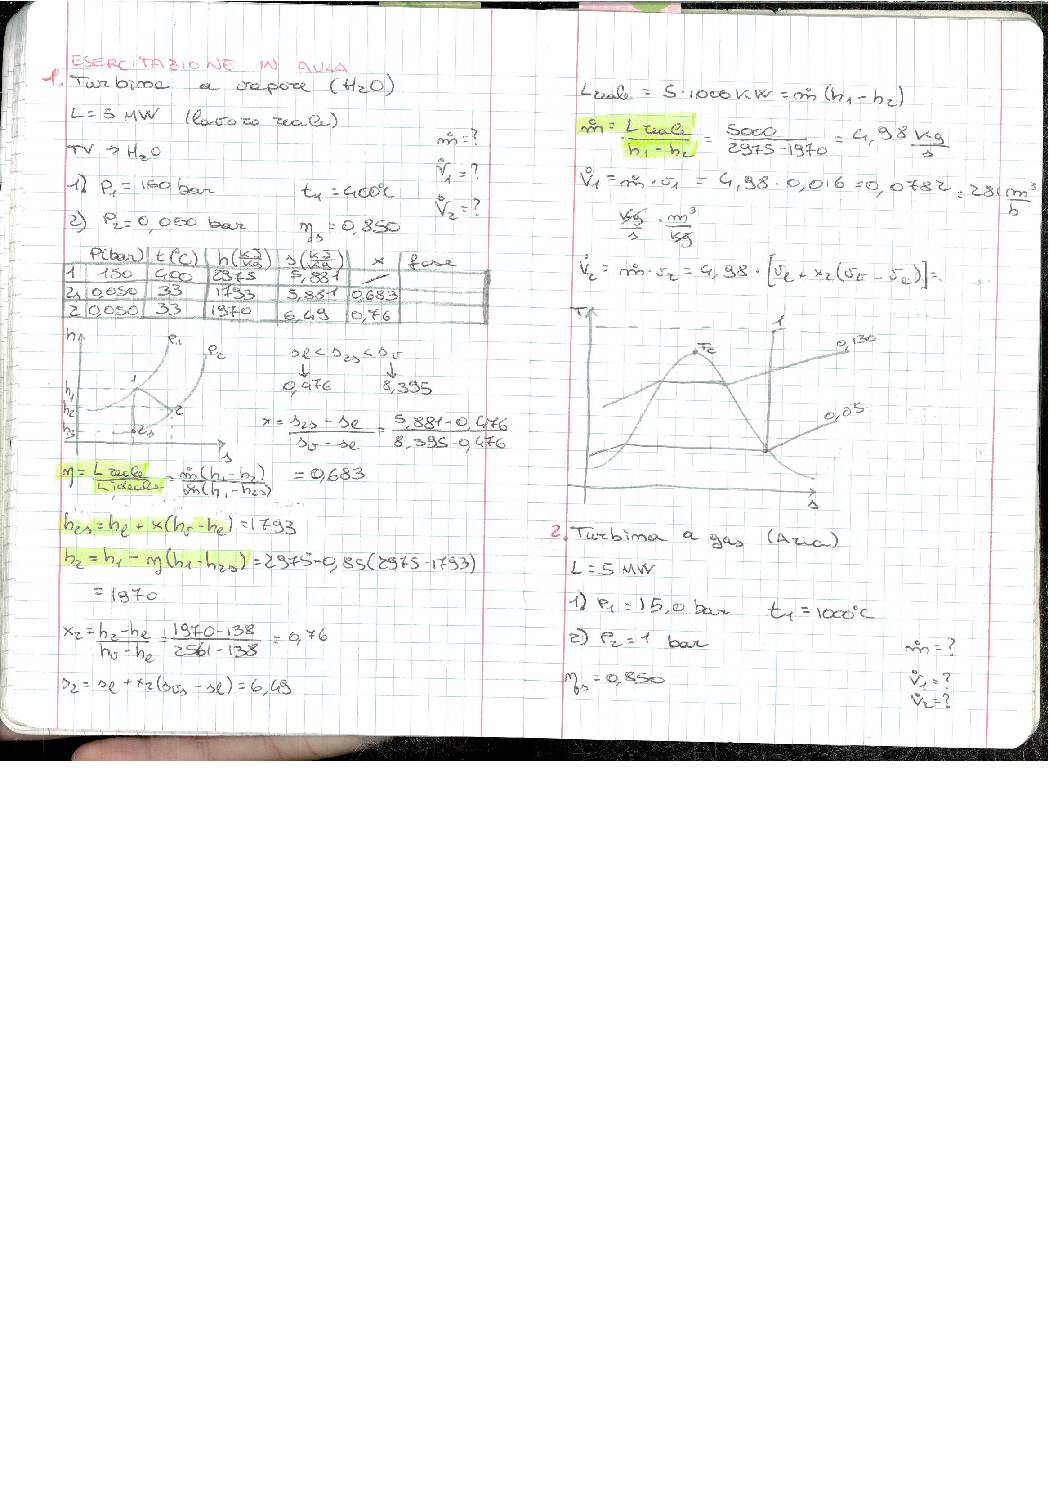 ESERCITAZIONE IN AULA
1. Turbina a vapore (H2O)
L = 5 MW (lavoro reale)
TV → H2O
ṁ = ?
V̇1 = ?
V̇2 = ?
1) P1 = 150 bar t1 = 400°C
2) P2 = 0,050 bar ηs = 0,850
P(bar) t(°C) h(kJ/kg) s(kJ/kg) x fase
1 150 400 2975 5,881 —
2s 0,050 33 1793 5,881 0,683
2 0,050 33 1970 6,49 0,76
h P1 P2
h1 1
h2 2
h3 2s
s
sl < s2s < sv
↓ ↓
0,476 8,395
x = (s2s - sl)/(sv - sl) = (5,881 - 0,476)/(8,395 - 0,476)
= 0,683
η = L reale/L ideale = ṁ(h1 - h2)/ṁ(h1 - h2s)
h2s = hl + x(hv - hl) = 1793
h2 = h1 - η(h1 - h2s) = 2975 - 0,85(2975 - 1793)
= 1970
x2 = (h2 - hl)/(hv - hl) = (1970 - 138)/(2561 - 138) = 0,76
s2 = sl + x2(svs - sl) = 6,49
L reale = 5·1000 kW = ṁ(h1 - h2)
ṁ = L reale/(h1 - h2) = 5000/(2975 - 1970) = 4,98 kg/s
V̇1 = ṁ · v1 = 4,98 · 0,016 = 0,0782 = 281 m³/h
kg/s · m³/kg
V̇2 = ṁ · v2 = 4,98 · [vl + x2(vv - vl)] =
T Tc 1 0,130
0,05
s
2. Turbina a gas (Aria)
L = 5 MW
1) P1 = 15,0 bar t1 = 1000°C
2) P2 = 1 bar
ηs = 0,850
ṁ = ?
V̇1 = ?
V̇2 = ?